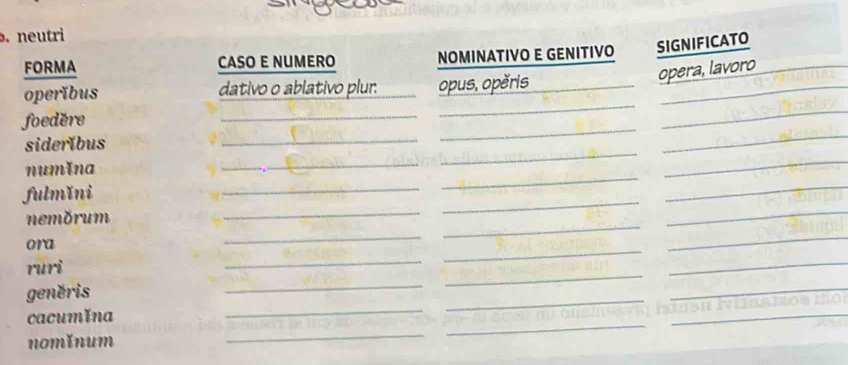 b. neutri
FORMA CASO E NUMERO NOMINATIVO E GENITIVO SIGNIFICATO
operĭbus dativo o ablativo plur. opus, opĕris opera, lavoro
foedĕre
siderĭbus
numĭna
fulmĭni
nemŏrum
ora
ruri
genĕris
cacumĭna
nomĭnum